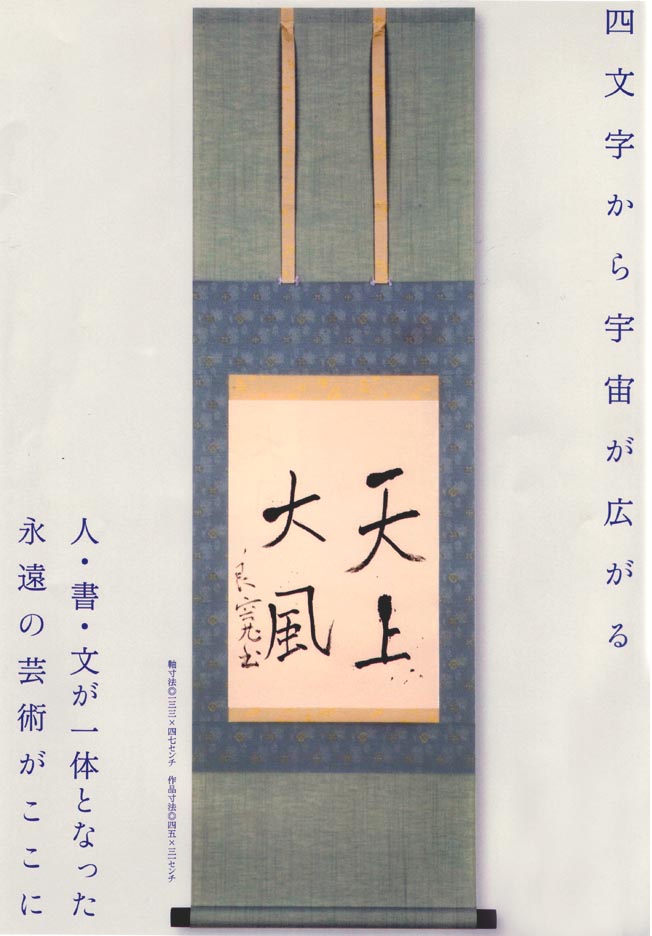 四文字から宇宙が広がる
天上
大風
良寛書
軸寸法◎一三三×四七センチ　作品寸法◎四五×三一センチ
人・書・文が一体となった
永遠の芸術がここに